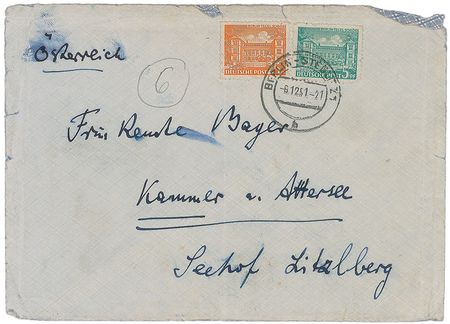 Österreich
6
DEUTSCHE POST
DEUTSCHE POST
-6.12.51.-21
b
Frau Renate Bayer
Kammer a. Attersee
Seehof Litzlberg